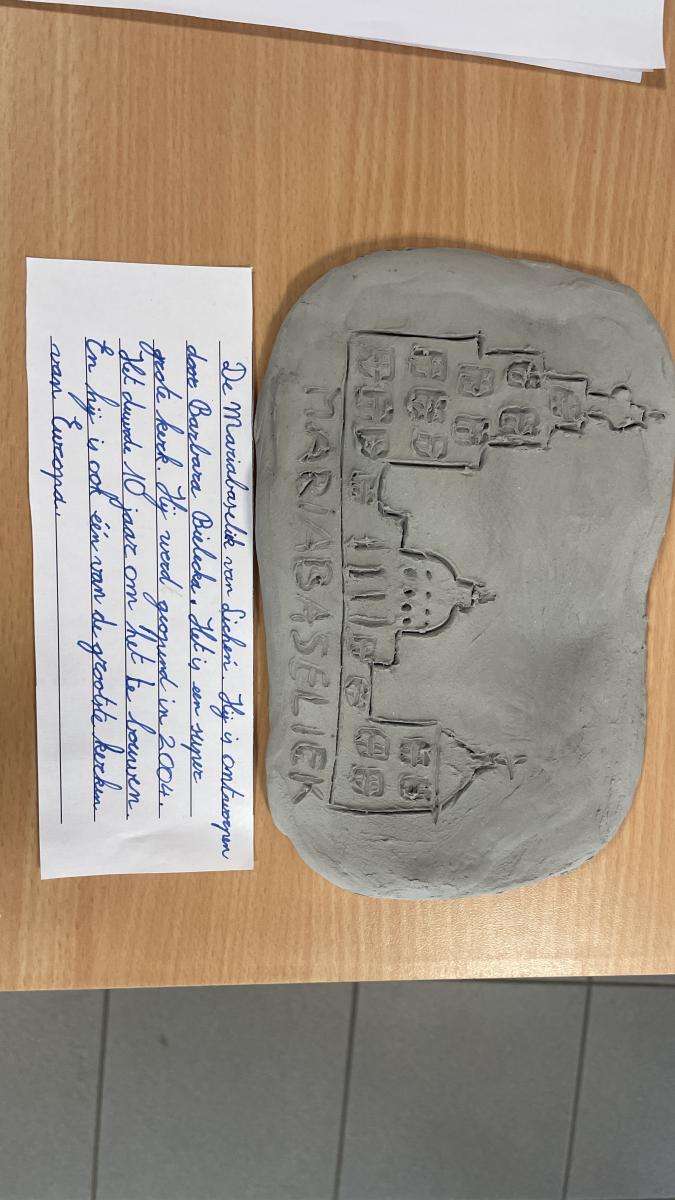 De Mariabaselik van Licheń. Hij is ontworpen
door Barbara Bielecka. Het is een super
grote kerk. Hij werd geopend in 2004.
Het duurde 10 jaar om het te bouwen.
En hij is ook één van de grootste kerken
van Europa.
MARIABASELIEK